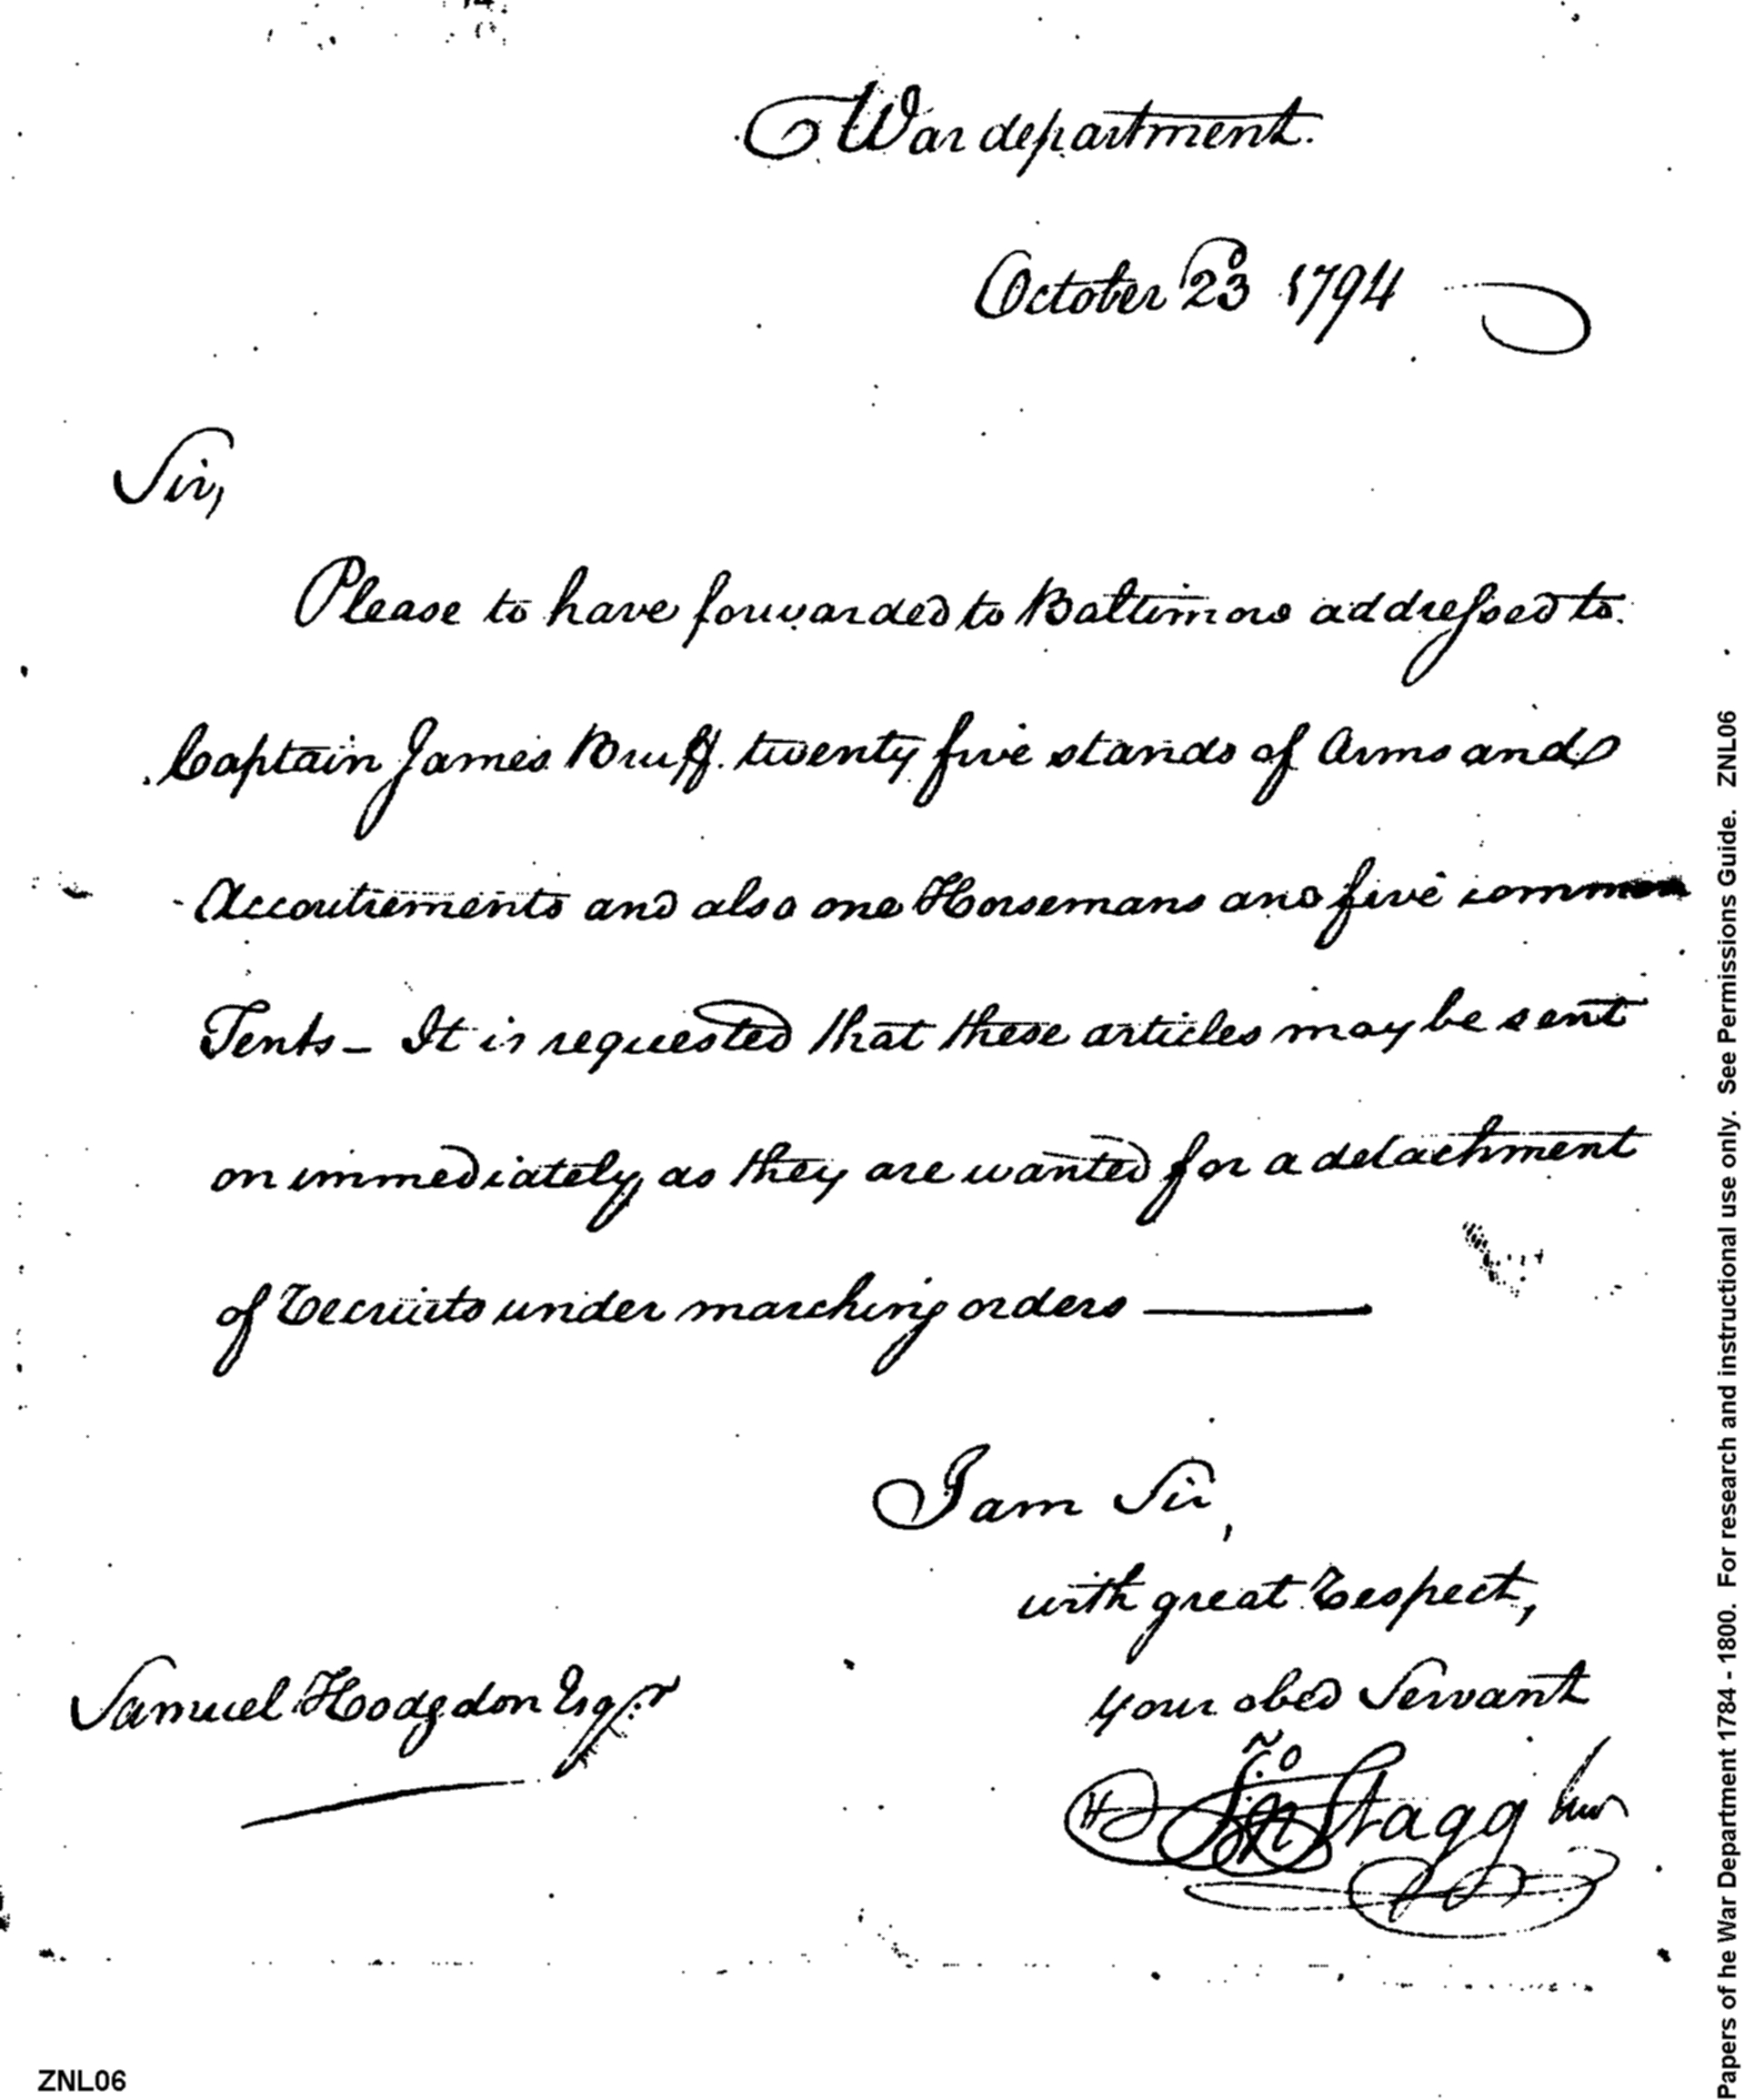 War department.
October 23 1794
Sir,
Please to have forwarded to Baltimore addressed to
Captain James Bruff twenty five stands of Arms and
Accoutrements and also one Horsemans and five common
Tents - It is requested that these articles may be sent
on immediately as they are wanted for a detachment
of Recruits under marching orders
I am Sir,
with great Respect,
your obed Servant
Jno Stagg Junr
Samuel Hodgdon Esqr
ZNL06
Papers of he War Department 1784 - 1800. For research and instructional use only. See Permissions Guide. ZNL06